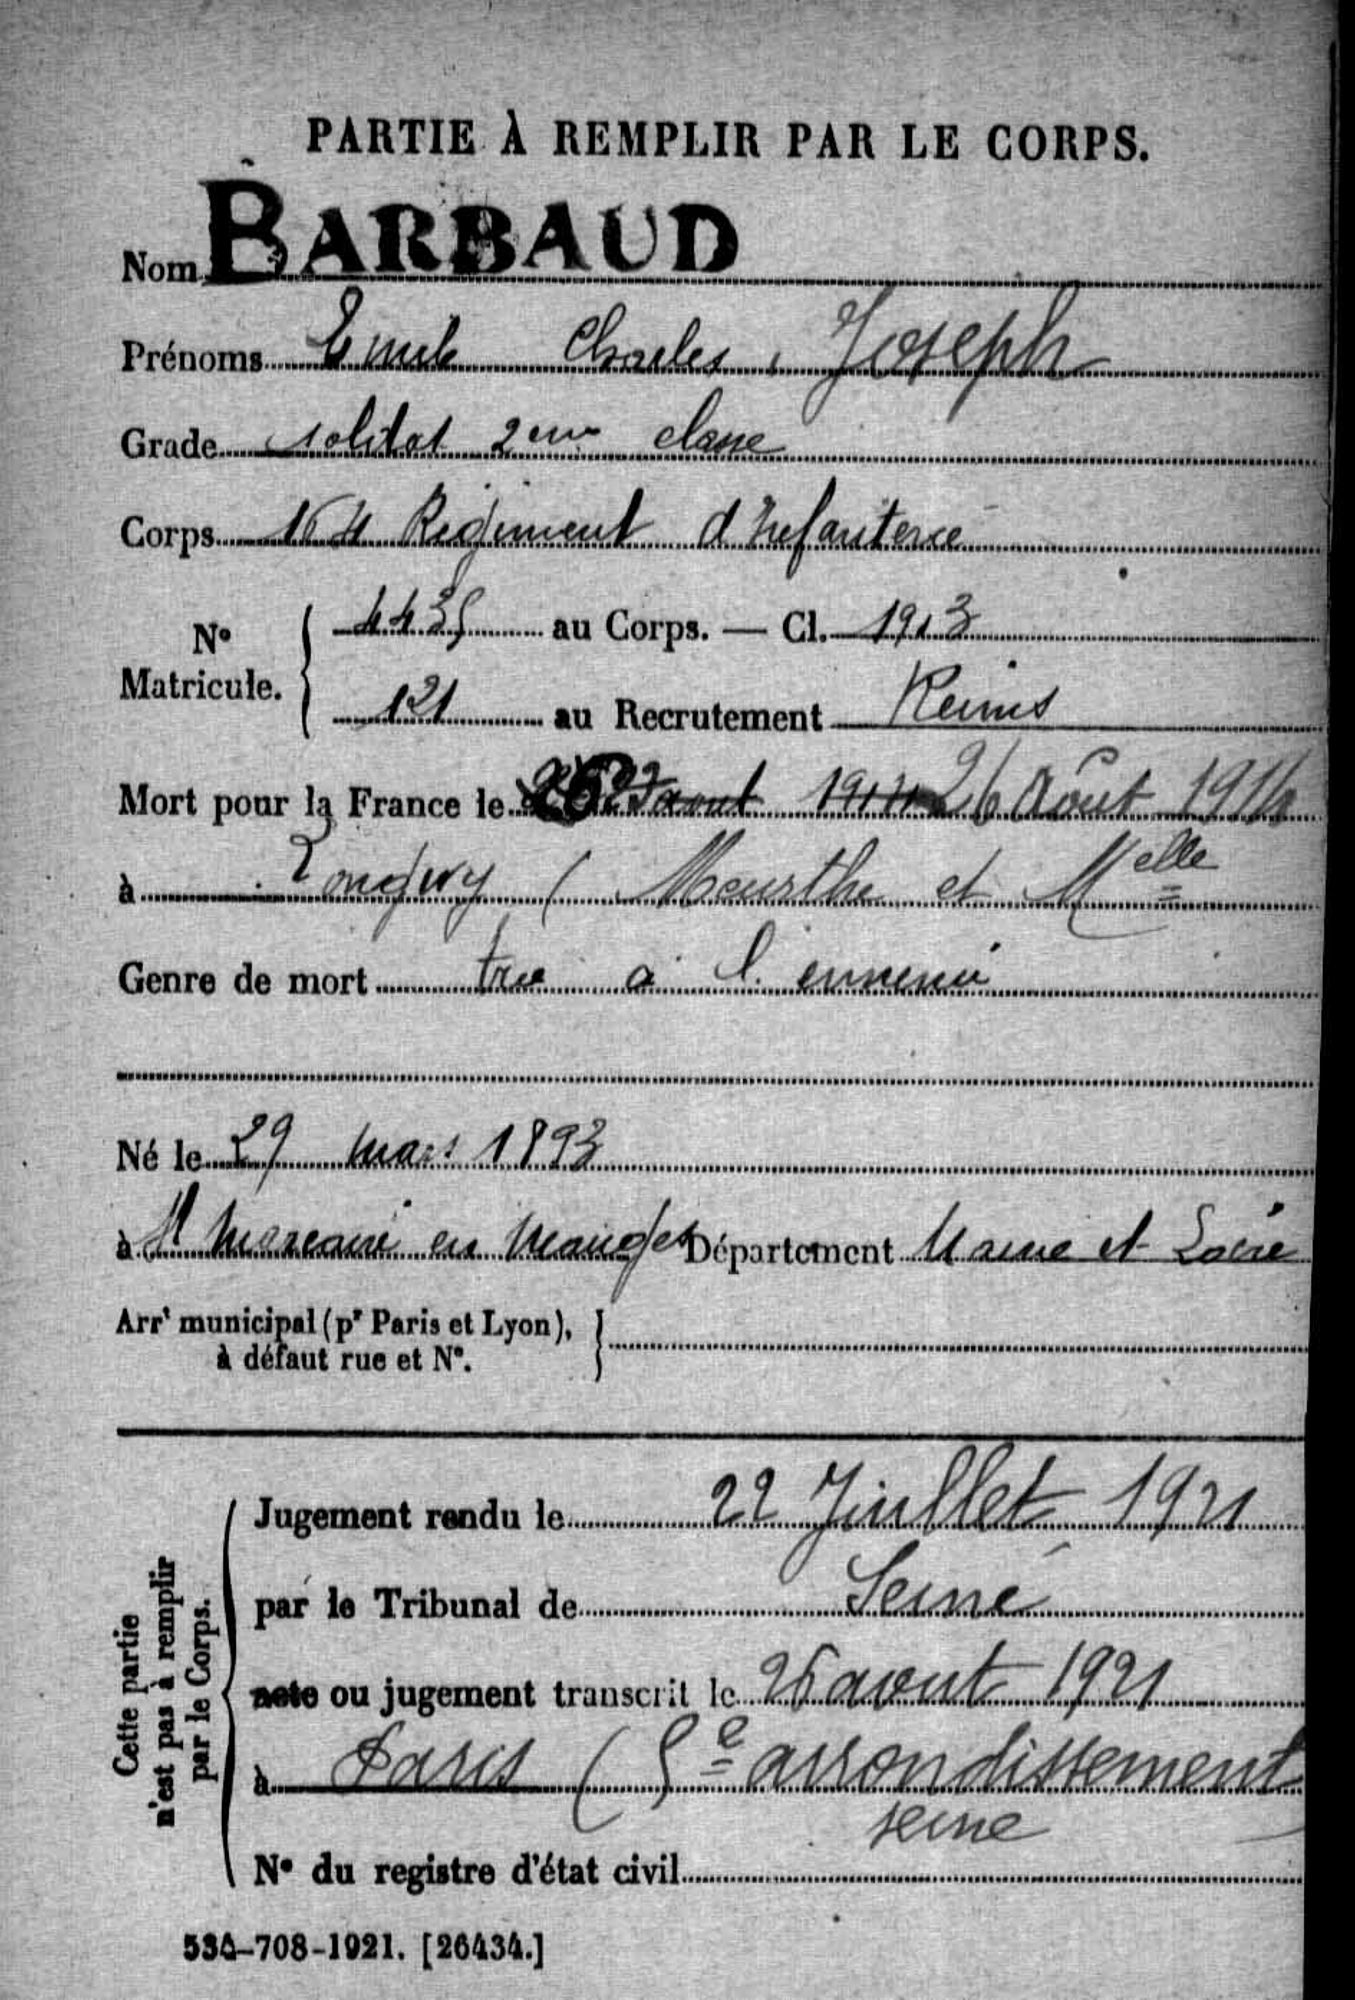 PARTIE À REMPLIR PAR LE CORPS.
Nom BARBAUD
Prénoms Emile Charles, Joseph
Grade soldat 2eme classe
Corps 164 Régiment d'Infanterie
N° Matricule. 4435 au Corps. — Cl. 1913
121 au Recrutement Reims
Mort pour la France le 26 août 1914 26 Août 1914
à Longwy ( Meurthe et Melle
Genre de mort tué à l'ennemi
Né le 29 mars 1893
à St Macaire en Mauges Département Maine et Loire
Arrt municipal (pr Paris et Lyon), à défaut rue et N°.
Cette partie n'est pas à remplir par le Corps.
Jugement rendu le 22 Juillet 1921
par le Tribunal de Seine
acte ou jugement transcrit le 26 aout 1921
à Paris ( 5e arrondissement
seine
N° du registre d'état civil
534-708-1921. [26434.]